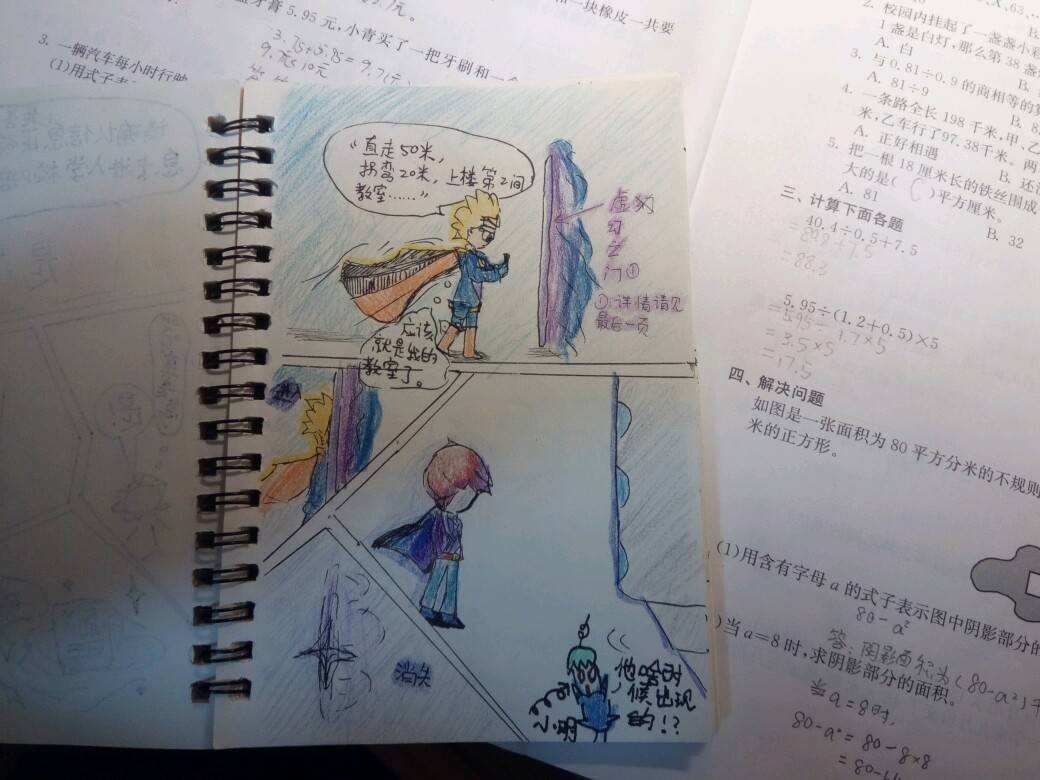 牙膏5.95元,小青买了一把牙刷和一
和一块橡皮一共要
3.75+5.95=9.7(元)
9.7元<10元
3. 一辆汽车每小时行驶
(1)用式子
“直走50米,
拐弯20米,上楼第2间
教室……”
虚幻之门①
①:详情请见
最后一页
应该
就是我的
教室了。
进入
消失
他啥时
候出现
的!?
小明
2. 校园内挂起了一盏盏小彩
1盏是白灯,那么第38盏
A. 白
B.
3. 与0.81÷0.9的商相等的
A. 81÷9
B. 8
4. 一条路全长198千米,甲、乙
米,乙车行了97.38千米。两
A. 正好相遇
B. 还
5. 把一根18厘米长的铁丝围成
大的是( C )平方厘米。
A. 81
B. 32
三、计算下面各题
40.4÷0.5+7.5
=88.3
5.95÷(1.2+0.5)×5
=5.95÷1.7×5
=3.5×5
=17.5
四、解决问题
如图是一张面积为80平方分米的不规则
米的正方形。
(1)用含有字母a的式子表示图中阴影部分的
80-a²
答:阴影面积为(80-a²)
)当a=8时,求阴影部分的面积。
当a=8时,
80-a²=80-8×8